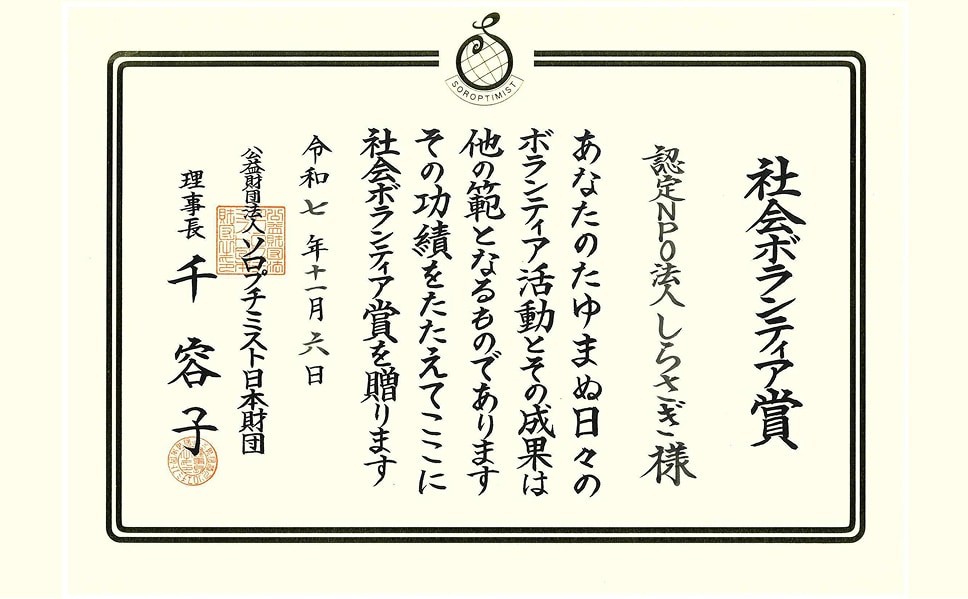 SOROPTIMIST
社会ボランティア賞
認定NPO法人しらさぎ様
あなたのたゆまぬ日々の
ボランティア活動とその成果は
他の範となるものであります
その功績をたたえてここに
社会ボランティア賞を贈ります
令和七年十一月六日
公益財団法人ソロプチミスト日本財団
理事長 千容子